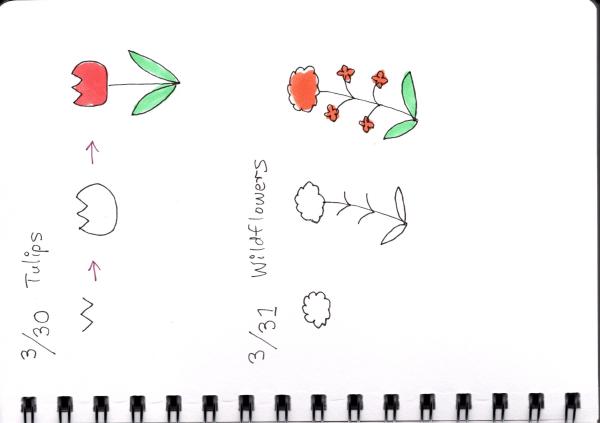 3/30 Tulips
3/31 Wildflowers